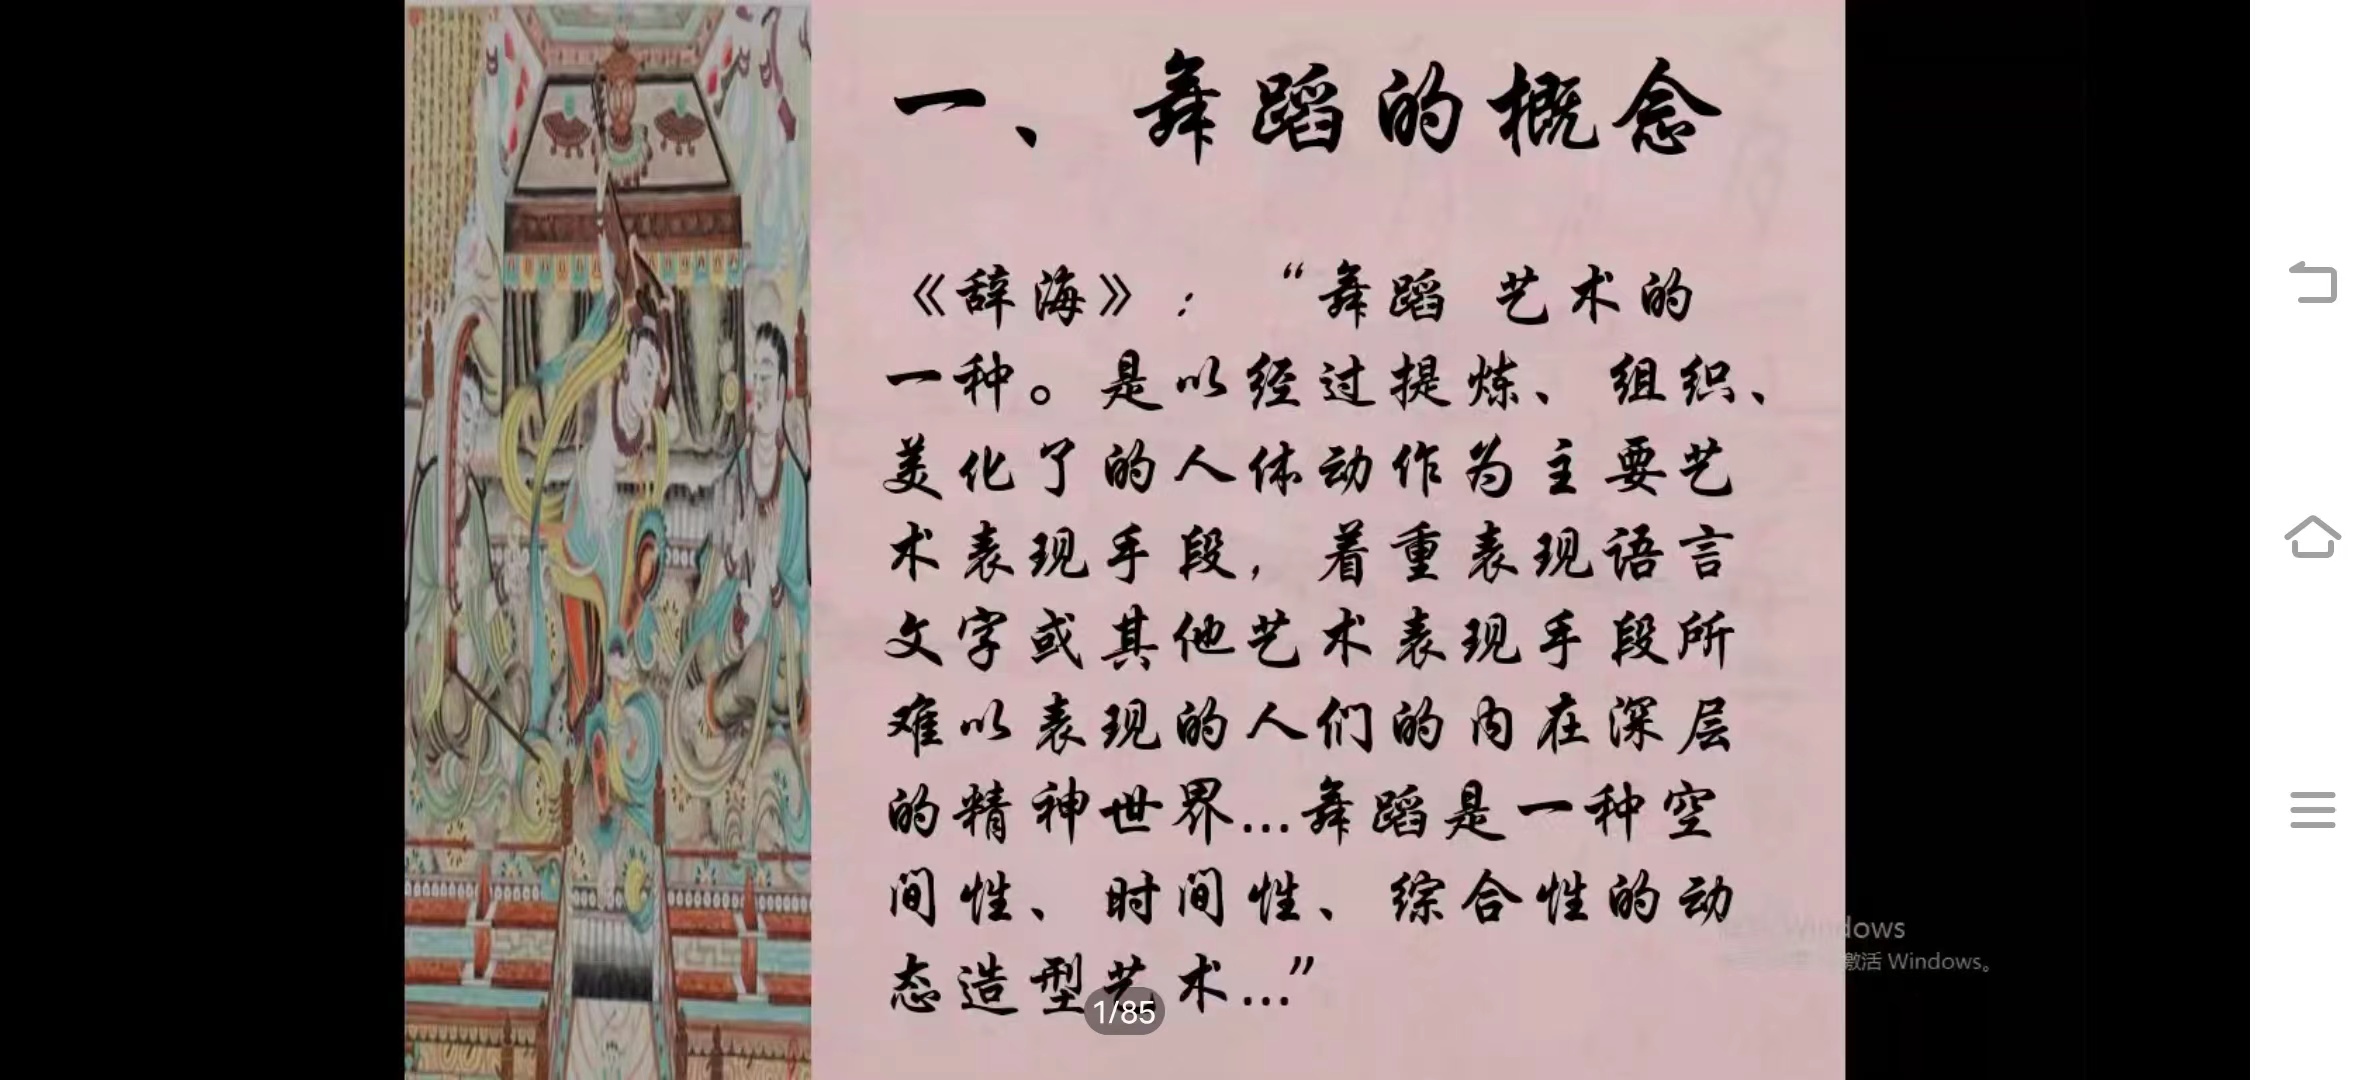 一、舞蹈的概念
《辞海》：“舞蹈 艺术的
一种。是以经过提炼、组织、
美化了的人体动作为主要艺
术表现手段，着重表现语言
文字或其他艺术表现手段所
难以表现的人们的内在深层
的精神世界...舞蹈是一种空
间性、时间性、综合性的动
态造型艺术...”
1/85
Windows
激活 Windows。